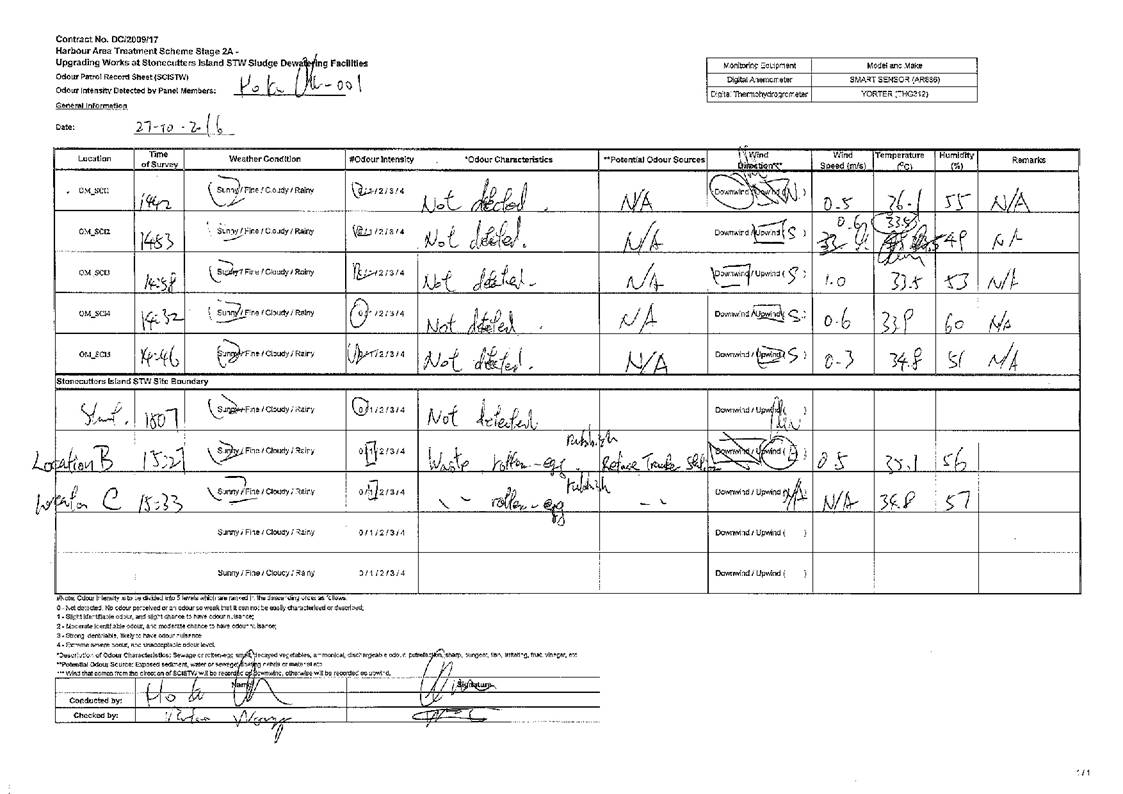 Contract No. DC/2009/17
Harbour Area Treatment Scheme Stage 2A -
Upgrading Works at Stonecutters Island STW Sludge Dewatering Facilities
Odour Patrol Record Sheet (SCISTW)
Odour Intensity Detected by Panel Members:
General Information
Date: 27-10-2016
Monitoring Equipment Model and Make
Digital Anemometer SMART SENSOR (AR836)
Digital Thermohydrogrometer YORTER (THG312)
Location Time of Survey Weather Condition #Odour Intensity *Odour Characteristics **Potential Odour Sources Wind Direction*** Wind Speed (m/s) Temperature (°C) Humidity (%) Remarks
OM_SCI1 1442 Sunny / Fine / Cloudy / Rainy 0/1/2/3/4 Not detected. N/A Downwind 0.5 26.1 55 N/A
OM_SCI2 Sunny / Fine / Cloudy / Rainy 0/1/2/3/4 Not detected. N/A Downwind / Upwind (S) 0.6 33.5 49 N/A
OM_SCI3 14:38 Sunny / Fine / Cloudy / Rainy 0/1/2/3/4 Not detected. N/A Downwind / Upwind (S) 1.0 33.5 53 N/A
OM_SCI4 14:32 Sunny / Fine / Cloudy / Rainy 0/1/2/3/4 Not detected N/A Downwind / Upwind (S) 0.6 33.9 60 N/A
OM_SCI5 14:46 Sunny / Fine / Cloudy / Rainy 0/1/2/3/4 Not detected. N/A Downwind / Upwind (S) 0.3 34.8 51 N/A
Stonecutters Island STW Site Boundary
Start. 1507 Sunny / Fine / Cloudy / Rainy 0/1/2/3/4 Not detected Downwind / Upwind ( )
Location B 15:27 Sunny / Fine / Cloudy / Rainy 0/1/2/3/4 Waste rotten-egg rubbish Refuse Downwind / Upwind 0.5 35.1 56
Location C 15:33 Sunny / Fine / Cloudy / Rainy 0/1/2/3/4 rotten-egg rubbish Downwind / Upwind N/A 34.8 57
Sunny / Fine / Cloudy / Rainy 0/1/2/3/4 Downwind / Upwind ( )
Sunny / Fine / Cloudy / Rainy 0/1/2/3/4 Downwind / Upwind ( )
#Note: Odour Intensity is to be divided into 5 levels which are ranked in the descending order as follows:
0 - Not detected. No odour perceived or an odour so weak that it can not be easily characterised or described;
1 - Slight identifiable odour, and slight chance to have odour nuisance;
2 - Moderate identifiable odour, and moderate chance to have odour nuisance;
3 - Strong identifiable, likely to have odour nuisance
4 - Extreme severe odour, and unacceptable odour level.
*Description of Odour Characteristics: Sewage or rotten-egg smell, decayed vegetables, ammonical, dischargeable odour, putrefaction, sharp, pungent, fish, irritating, fruit, vinegar, etc
**Potential Odour Source: Exposed sediment, water or sewage, floating debris or material etc
*** Wind that comes from the direction of SCISTW, will be recorded as downwind, otherwise will be recorded as upwind.
Name Signature
Conducted by:
Checked by:
1/1